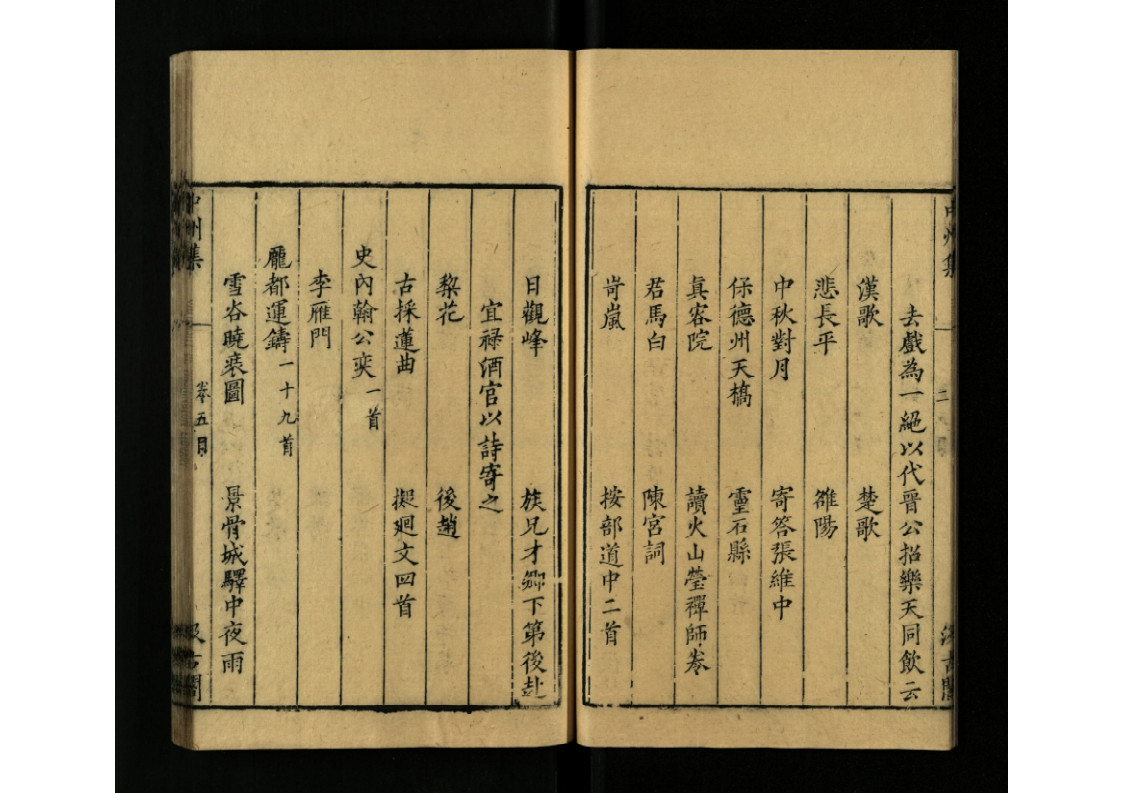 去戲為一絕以代晉公招樂天同飲云
漢歌 楚歌
悲長平 雒陽
中秋對月 寄答張維中
保德州天橋 靈石縣
真容院 讀火山瑩禪師卷
君馬白 陳宮詞
岢嵐 按部道中二首
日觀峰 族兄才卿下第後赴
宜祿酒官以詩寄之
梨花 後趙
古採蓮曲 擬廻文四首
史內翰公奕一首
李雁門
龐都運鑄一十九首
雪谷曉裝圖 景骨城驛中夜雨
中州集 卷五目 汲古閣